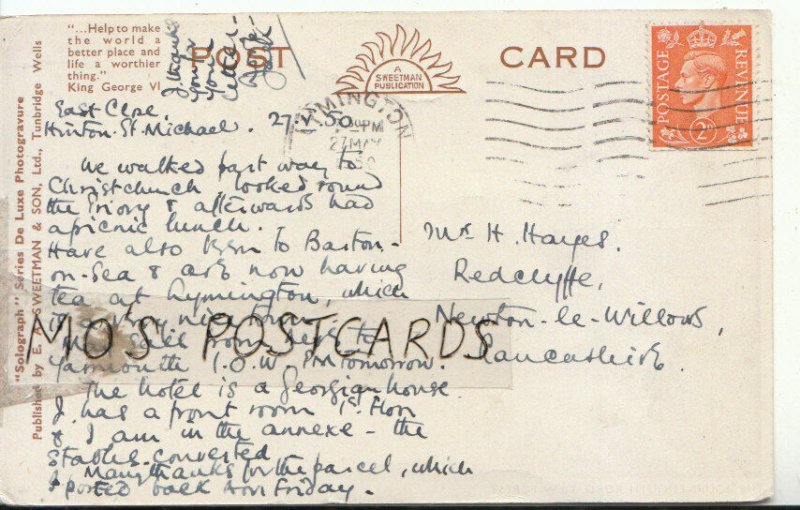 "...Help to make
the world a
better place and
life a worthier
thing."
King George VI
POST CARD
A
SWEETMAN
PUBLICATION
POSTAGE REVENUE
2D
LYMINGTON
PM
27 MAY
"Solograph" Series De Luxe Photogravure
Published by E. A. SWEETMAN & SON, Ltd., Tunbridge Wells
East Close,
Hinton St. Michael. 27.V.50
We walked part way to
Christchurch, looked round
the Priory & afterwards had
a picnic lunch.
Have also been to Barton-
on-Sea & are now having
tea at Lymington, which
is a very nice town.
We sail from here to
Yarmouth I.O.W. PM tomorrow.
The hotel is a Georgian house
J. has a front room 1st floor
& I am in the annexe - the
stables converted
Many thanks for the parcel, which
I posted back on Friday.
thanks
for
your
letter-
Mrs H. Hayes.
Redclyffe,
Newton-le-Willows,
Lancashire.
MO'S POSTCARDS